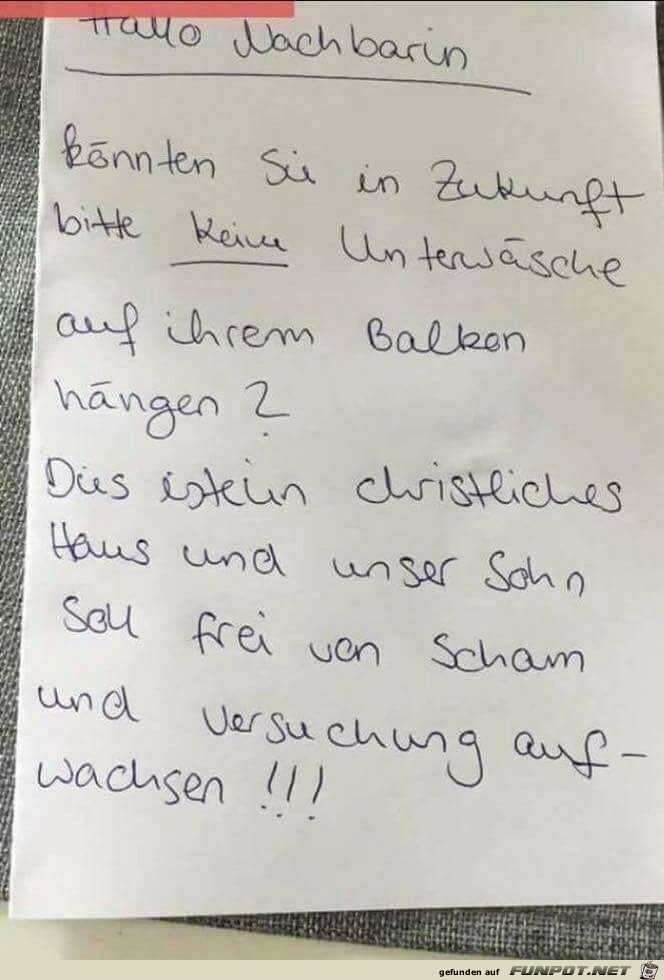 Hallo Nachbarin
könnten Sie in Zukunft
bitte keine Unterwäsche
auf ihrem Balkon
hängen?
Dies ist ein christliches
Haus und unser Sohn
soll frei von Scham
und Versuchung auf-
wachsen!!!
gefunden auf FUNPOT.NET